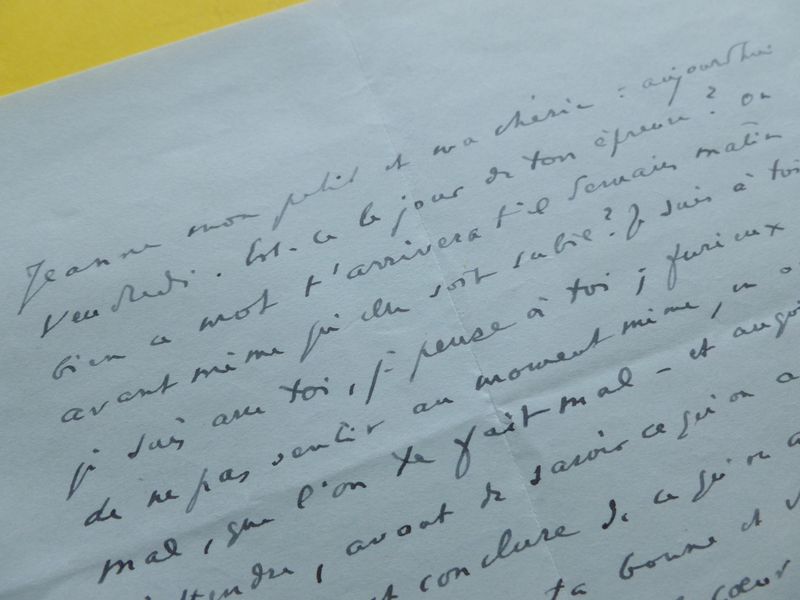 Jeanne mon petit et ma chérie : aujourd'hui
vendredi. Est-ce le jour de ton épreuve ? ou
bien ce mot t'arrivera t-il demain matin
avant même qu'elle soit subie ? Je suis à toi
je suis avec toi, je pense à toi ; furieux
de ne pas sentir au moment même, en
mal, que l'on te fait mal - et
attendre, avant de savoir ce qu'on a
conclure de ce qu'on a
ta bonne et
cœur